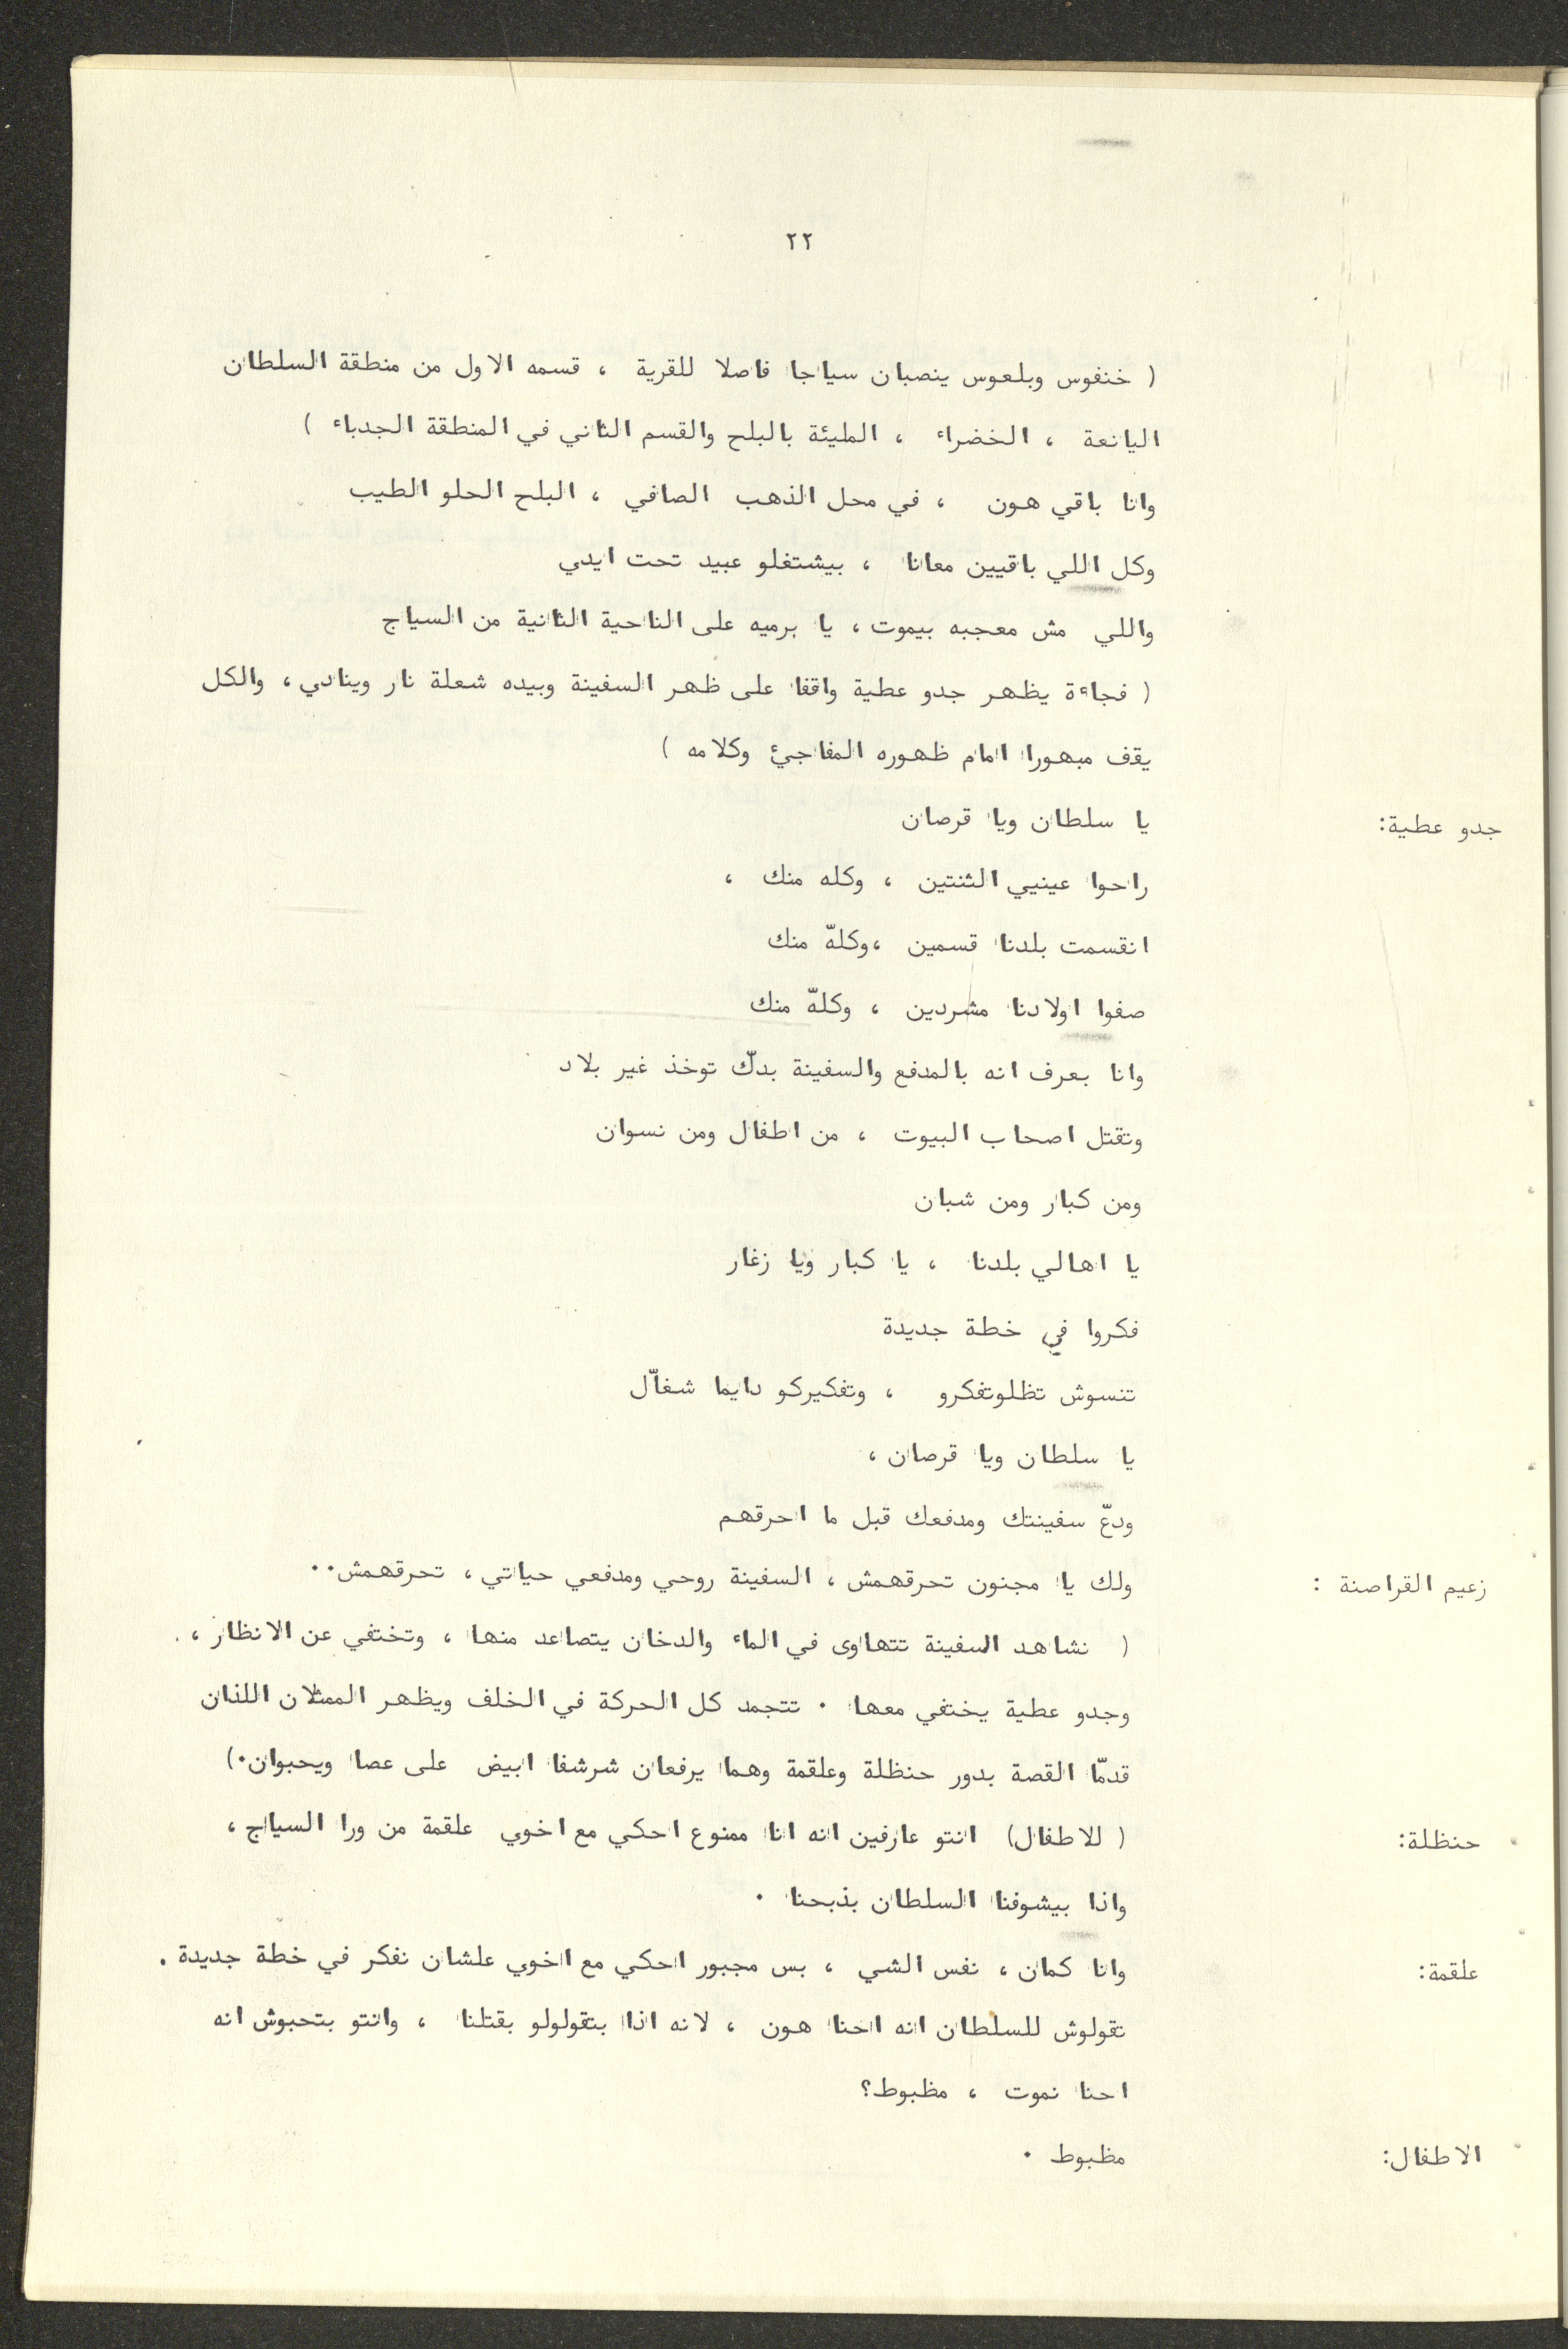 ٢٢
( خنفوس وبلعوس ينصبان سياجا فاصلا للقرية ، قسمه الاول من منطقة السلطان
اليانعة ، الخضراء ، المليئة بالبلح والقسم الثاني في المنطقة الجدباء )
وانا باقي هون ، في محل الذهب الصافي ، البلح الحلو الطيب
وكل اللي باقيين معانا ، بيشتغلو عبيد تحت ايدي
واللي مش معجبه بيموت ، يا برميه على الناحية الثانية من السياج
( فجاءة يظهر جدو عطية واقفا على ظهر السفينة وبيده شعلة نار وينادي ، والكل
يقف مبهورا امام ظهوره المفاجئ وكلامه )
جدو عطية: يا سلطان ويا قرصان
راحوا عينيي الثنتين ، وكله منك ،
انقسمت بلدنا قسمين ، وكلهّ منك
صفوا اولادنا مشردين ، وكلهّ منك
وانا بعرف انه بالمدفع والسفينة بدكّ توخذ غير بلاد
وتقتل اصحاب البيوت ، من اطفال ومن نسوان
ومن كبار ومن شبان
يا اهالي بلدنا ، يا كبار ويا زغار
فكروا في خطة جديدة
تنسوش تظلوتفكرو ، وتفكيركو دايما شغاّل
يا سلطان ويا قرصان ،
ودعّ سفينتك ومدفعك قبل ما احرقهم
زعيم القراصنة : ولك يا مجنون تحرقهمش ، السفينة روحي ومدفعي حياتي ، تحرقهمش..
( نشاهد السفينة تتهاوى في الماء والدخان يتصاعد منها ، وتختفي عن الانظار ،
وجدو عطية يختفي معها . تتجمد كل الحركة في الخلف ويظهر الممثلان اللذان
قدمّا القصة بدور حنظلة وعلقمة وهما يرفعان شرشفا ابيض على عصا ويحبوان.)
حنظلة: ( للاطفال) انتو عارفين انه انا ممنوع احكي مع اخوي علقمة من ورا السياج ،
واذا بيشوفنا السلطان بذبحنا .
علقمة: وانا كمان ، نفس الشي ، بس مجبور احكي مع اخوي علشان نفكر في خطة جديدة .
تقولوش للسلطان انه احنا هون ، لانه اذا بتقولولو بقتلنا ، وانتو بتحبوش انه
احنا نموت ، مظبوط؟
الاطفال: مظبوط .